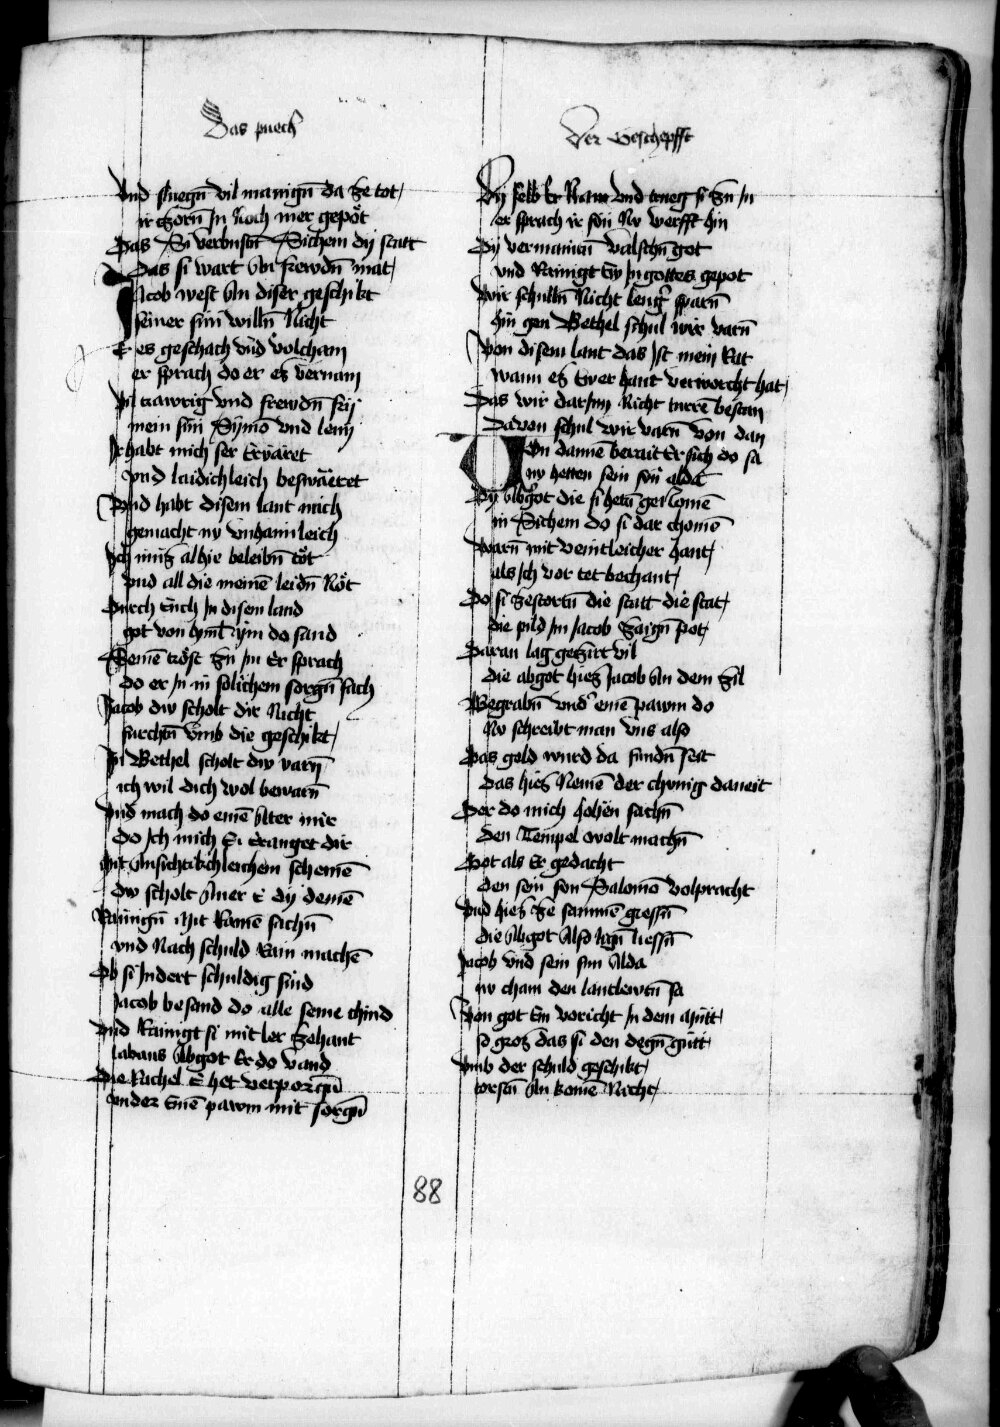 Das puech
Der Geschepfft
Vnd sluegn̄ vil manign̄ da ze tot
ir zorn̄ Jn Noch mer gepöt
Das Si verbustn̄ Sichem dy statt
Das si wart An frewdn̄ mat
Jacob west An diser geschikt
seiner sün willn̄ Nicht
E es geschach vnd volcham
er sprach do er es vernam
Vil trawrig vnd frewdn̄ frÿ
mein sün Symō vnd leuy
Jr habt mich ser Ervaret
vnd laidichleich beswaret
Vnd habt disem lant mich
gemacht ny vnhaimleich
Jch mus alhie beleibn̄ töt
vnd all die meinē leidn̄ Nöt
Durch Euch Jn disem land
got von hyml ym do sand
Seinē tröst zu Jm Er sprach
do er Jn in solichem sorgn̄ sach
Jacob dw scholt dir Nicht
furchtn̄ vmb die geschikt
In Bethel scholt dw varn̄
ich wil dich wol bewarn̄
Vnd mach do einē Alter mir
do Jch mich Ee Eranget dir
Mit Ansichtichleichem schemē
dw scholt Aner E dy deinē
Rainign̄ Mit Rainē sachn̄
vnd Nach schuld Rain machē
Ob si Jndert schuldig sind
Jacob besand do alle seine chind
Vnd Rainigt si mit ler zehant
labans Abgot Er do vand
Die Rachel E het verporgn̄
vnder Einē pawm mit sorgn̄
Dy selb Er Nam vnd trueg si zu Jn
er sprach ir sön Nv werfft hin
Dy vermanian valschn̄ got
vnd Rainigt Ew Jn gottes gepot
Wir schulln̄ Nicht leng' sparn̄
hin gen Bethel schul wir varn̄
Von disem lant das Jst mein Rat
wann es Ewer hant verworcht hat
Das wir darJnn Nicht turrē bestan
Davon schul wir varn̄ von dan
Von dannē berait Er sich do sa
nv hetten sein sön alda
Dy Abgot die si hetn̄ genomē
in Sichem do si dar chomē
Warn̄ mit veintleicher hant
als Jch vor tet bechant
Do si zestortn̄ die statt die stat
die pild Jm Jacob zaign̄ pot
Daran lag gezirt vil
die abgot hies Jacob An dem zil
Begrabn̄ vnd' einē pawm do
Nv schreibt man vns also
Das gold wurd da fundn̄ seit
das hies Nemē der chunig daueit
Der do mich hohen sachn̄
den Tempel wolt machn̄
Got als Er gedacht
den sein son Salomō volpracht
Vnd hies ze samnē gressn̄
die Abgot Also lign̄ liessn̄
Jacob vnd sein sun Alda
nv cham den lantlewtn̄ sa
Von got Ein voricht Jn dem mutt
so gros das si den degn̄ gutt
Vmb der schuld geschikt
torstn̄ An komē Nicht
88